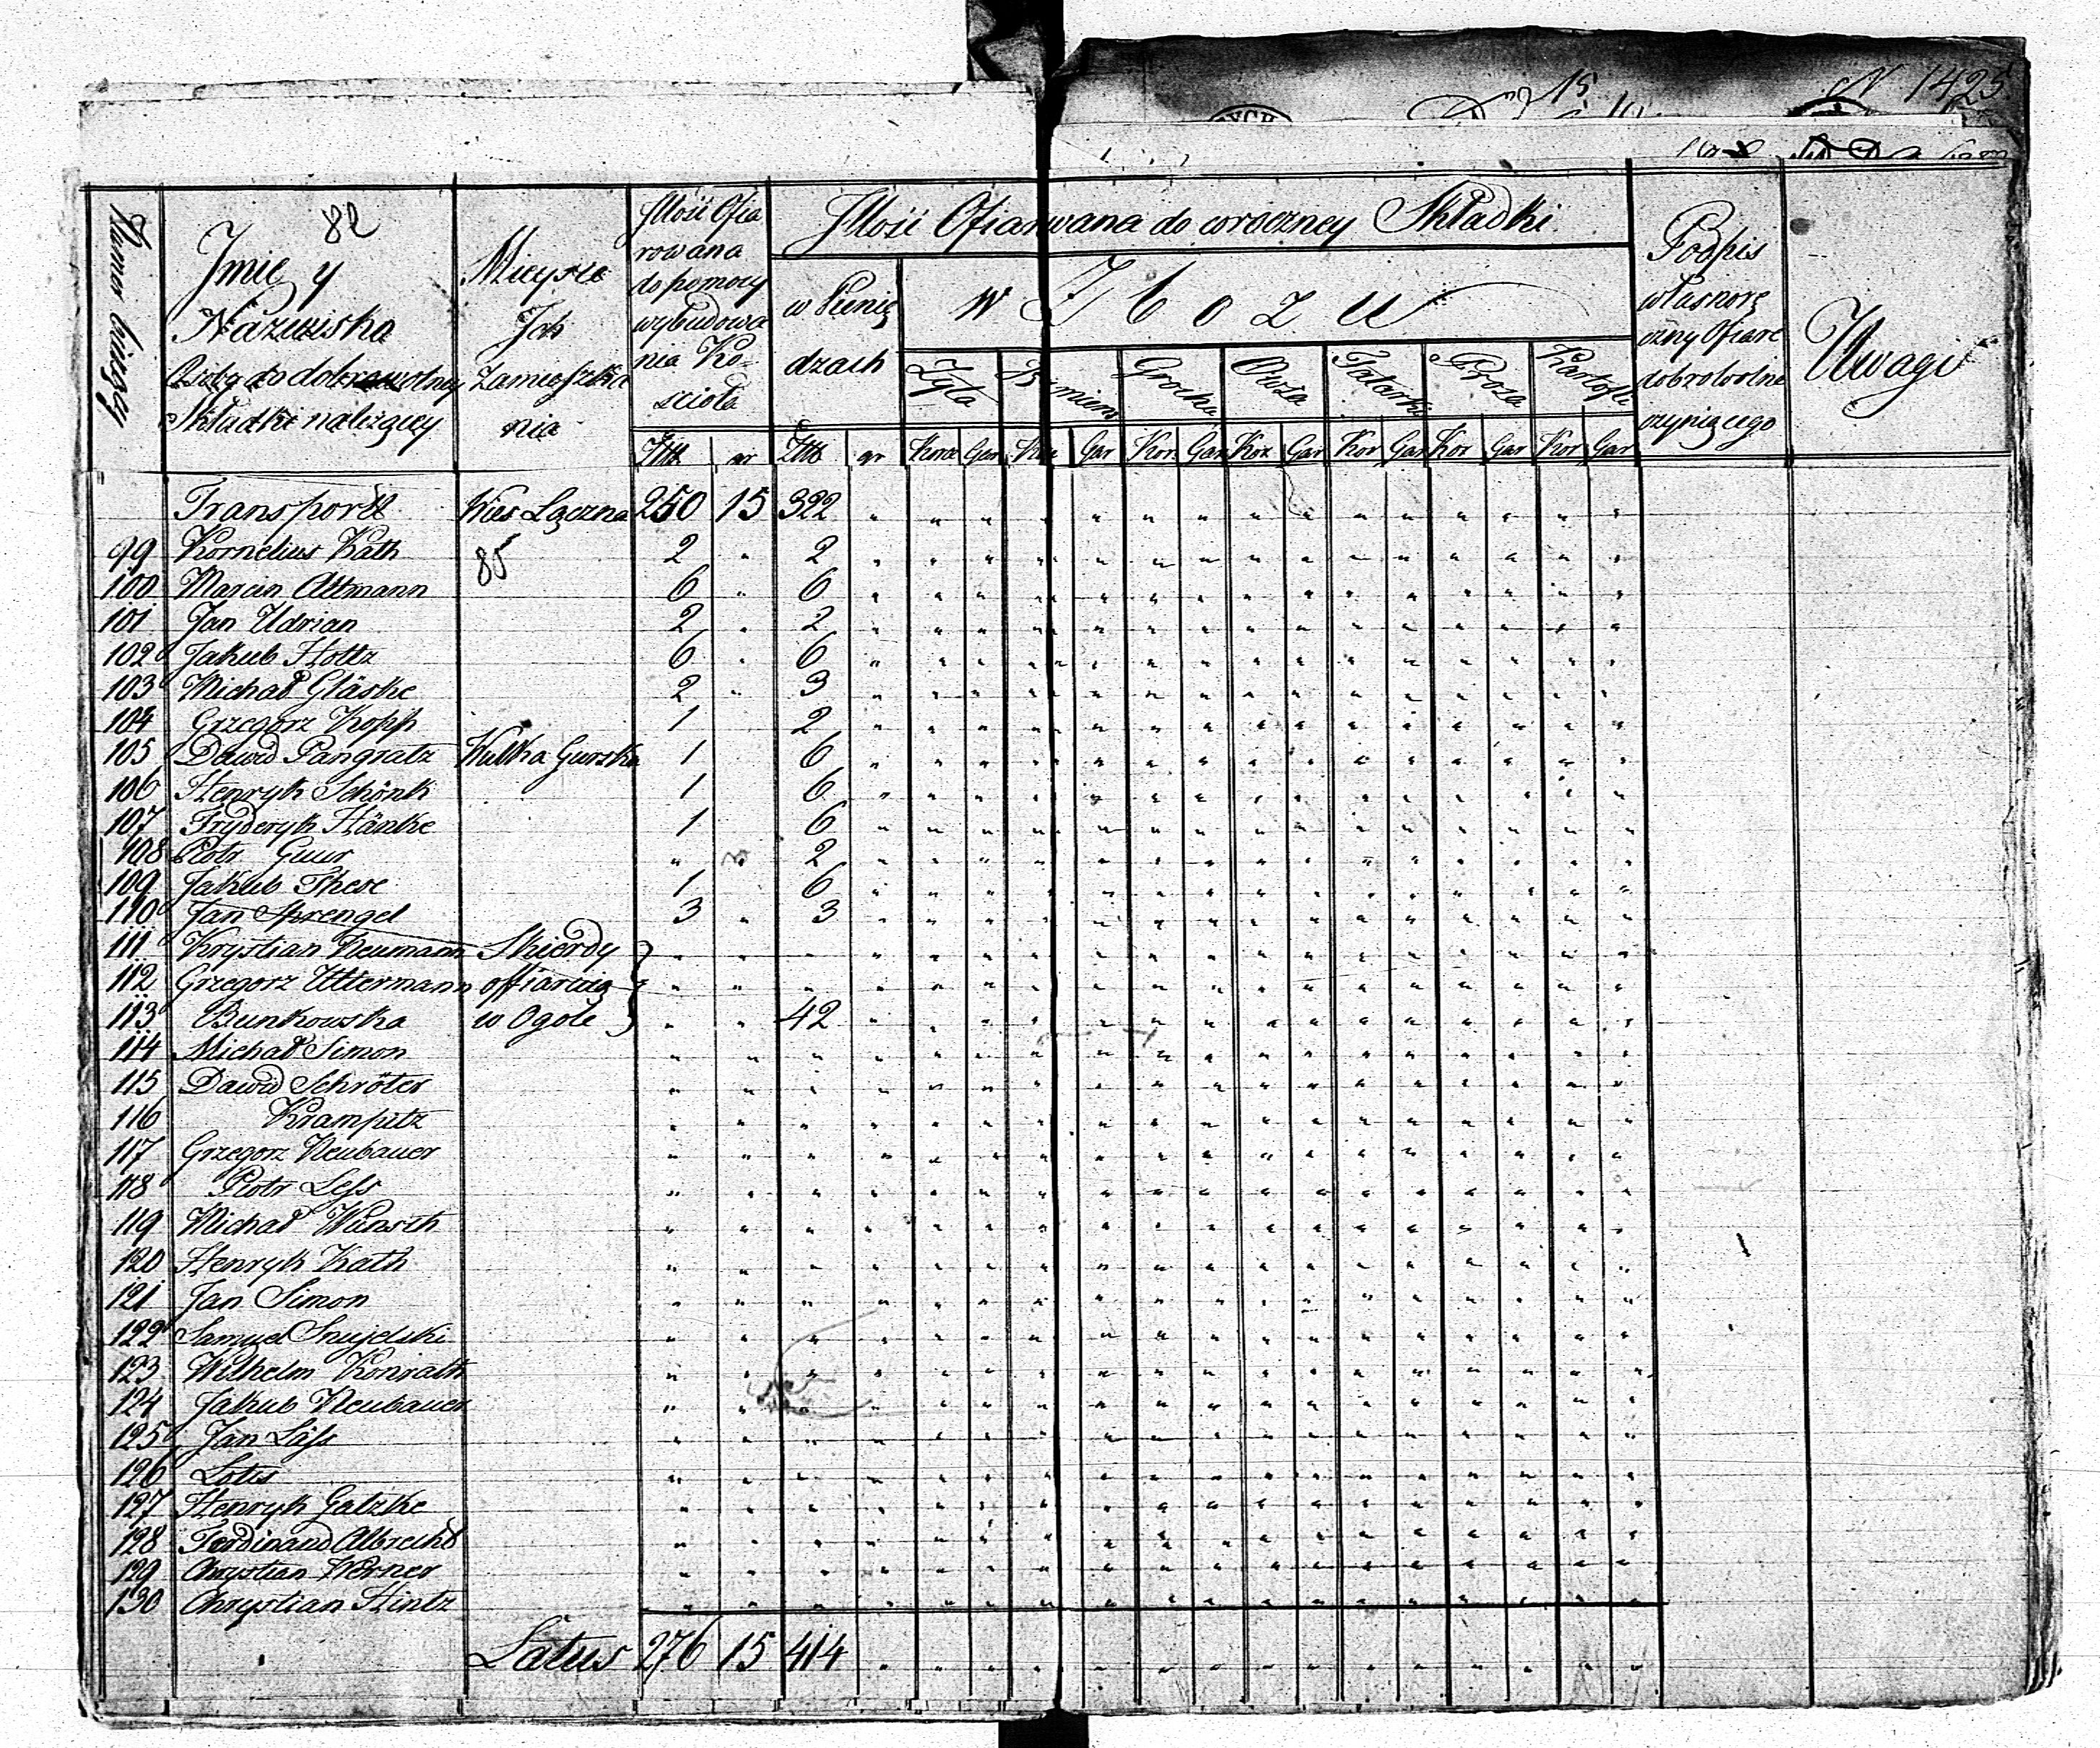 15
N 1425
YCH
82
Numer bieżący
Jmie y
Nazwiska
Osoby do dobrowolney
Składki należącey
Mieysce
Ich
Zamieszka
nia
Jllość Ofia
rowana
do pomocy
wybudowa
nia Ko-
scioła
Jllość Ofiarowana do coroczney Składki
w Pienię
dzach
w Zbożu
Żyta
Grochu
Owsa
Tatarki
Prosa
Kartofli
Podpis
własnorę
czny Ofiarę
dobrowolne
czyniącego
Uwagi
Złł gr Złł gr Korce Gar Kor Gar Kor Gar Kor Gar Kor Gar Kor Gar Kor Gar
Transportt Wies Łączna 250 15 322 " " " " " " " " " " " " " " "
99 Kornelius Kath 85 2 " 2 " " " " " " " " " " " " " " "
100 Marcin Altmann 6 " 6 " " " " " " " " " " " " " " "
101 Jan Udrian 2 " 2 " " " " " " " " " " " " " " "
102 Jakub Holtz 6 " 6 " " " " " " " " " " " " " " "
103 Michał Gläske 2 " 3 " " " " " " " " " " " " " " "
104 Grzegorz Kopp 1 2 " " " " " " " " " " " " " " "
105 Dawid Pangratz Wulka Gurska 1 6 " " " " " " " " " " " " " " "
106 Henryk Schönk 1 6 " " " " " " " " " " " " " " "
107 Fryderyk Hänke 1 6 " " " " " " " " " " " " " " "
108 Piotr Guur " " 2 " " " " " " " " " " " " " " "
109 Jakub These 1 6 " " " " " " " " " " " " " " "
110 Jan Sprengel 3 " 3 " " " " " " " " " " " " " " "
111 Krystian Neumann Skierdy " " " " " " " " " " " " " " " " " "
112 Grzegorz Uttermann offiaruią " " " " " " " " " " " " " " " " " "
113 Bunkowska w Ogole " " 42 " " " " " " " " " " " " " " "
114 Michał Simon " " " " " " " " " " " " " " " " " "
115 Dawid Schröter " " " " " " " " " " " " " " " " " "
116 Krampitz " " " " " " " " " " " " " " " " " "
117 Grzegorz Neubauer " " " " " " " " " " " " " " " " " "
118 Piotr Less " " " " " " " " " " " " " " " " " "
119 Michał Wunsch " " " " " " " " " " " " " " " " " "
120 Henryk Kath " " " " " " " " " " " " " " " " " "
121 Jan Simon " " " " " " " " " " " " " " " " " "
122 Samuel Snujelski " " " " " " " " " " " " " " " " " "
123 Wilhelm Konrath " " " " " " " " " " " " " " " " " "
124 Jakub Neubauer " " " " " " " " " " " " " " " " " "
125 Jan Läss " " " " " " " " " " " " " " " " " "
126 Lotis " " " " " " " " " " " " " " " " " "
127 Henryk Gatzke " " " " " " " " " " " " " " " " " "
128 Ferdinand Albrecht " " " " " " " " " " " " " " " " " "
129 Chrystian Werner " " " " " " " " " " " " " " " " " "
130 Chrystian Hintz " " " " " " " " " " " " " " " " " "
Latus 276 15 414 " " " " " " " " " " " " " " "